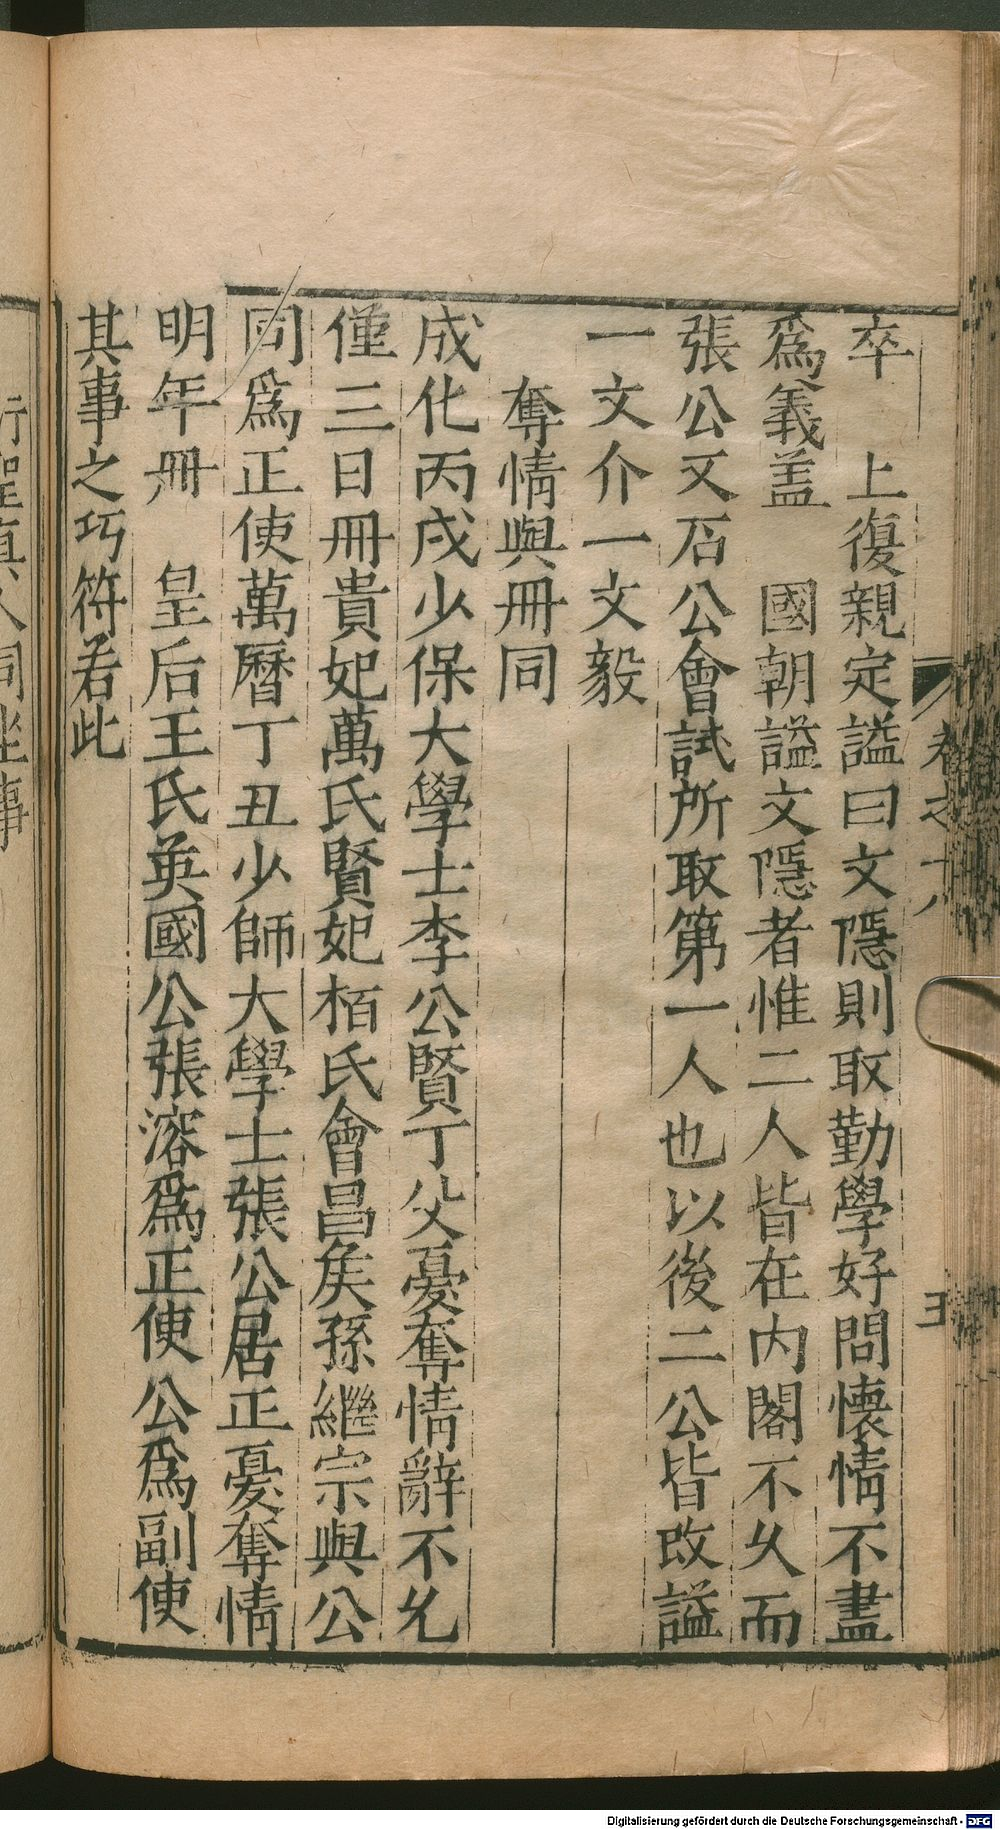 卒　上復親定謚曰文隱則取勤學好問懷情不盡
爲義盖　國朝謚文隱者惟二人皆在内閣不久而
張公又石公會試所取第一人也以後二公皆改謚
一文介一文毅
奪情與冊同
成化丙戌少保大學士李公賢丁父憂奪情辭不允
僅三日冊貴妃萬氏賢妃栢氏會昌矦孫繼宗與公
同爲正使萬曆丁丑少師大學士張公居正憂奪情
明年冊　皇后王氏英國公張溶爲正使公爲副使
其事之巧符若此
卷之十八
Digitalisierung gefördert durch die Deutsche Forschungsgemeinschaft - DFG